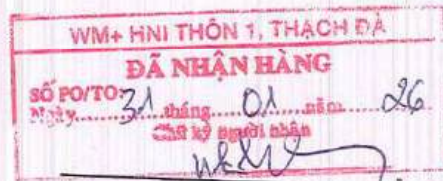 WM+ HNI THÔN 1, THẠCH ĐÀ
ĐÃ NHẬN HÀNG
SỐ PO/TO:
Ngày 31 tháng 01 năm 26
Chữ ký người nhận